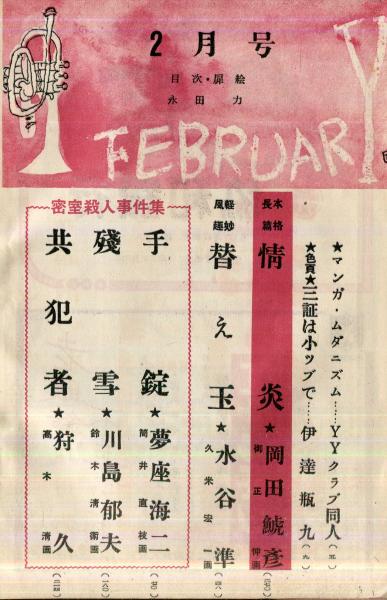 2月号
目次・扉絵
永田力
FEBRUARY
★マンガ・ムダニズム……YYクラブ同人
★色頁★三証は小ツブで……伊達瓶九
本格長篇 情炎★岡田鯱彦 御正伸画
軽妙風趣 替え玉★水谷準 久米宏一画
密室殺人事件集
手錠★夢座海二 筒井直枝画
殘雪★川島郁夫 鈴木清衛画
共犯者★狩久 高木清画